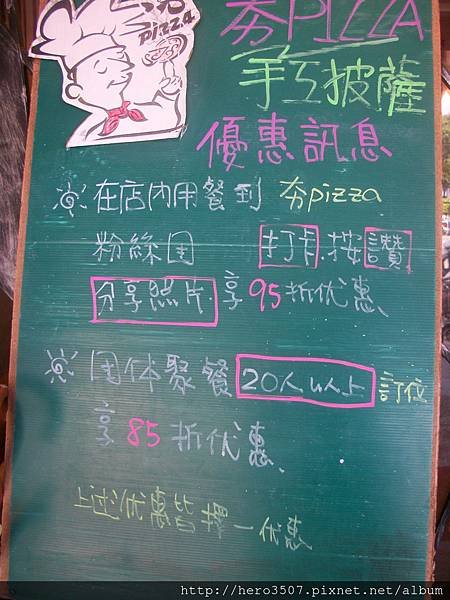 pizza
夯PIZZA
手工披薩
優惠訊息
在店內用餐到 夯pizza
粉絲团 打卡.按讚
分享照片.享95折优惠.
团体聚餐 20人以上 訂位
享85折优惠.
上述优惠皆擇一优惠
http://hero3507.pixnet.net/album